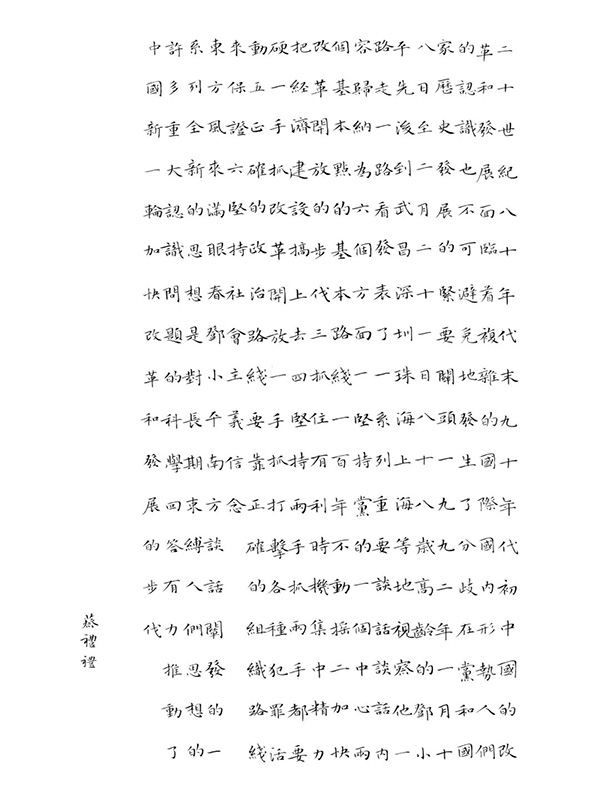 二十世紀八十年代末九十年代初中國的改
革和發展面臨着複雜的國際國內形勢人們
的認識也不可避免地發生了分歧在黨和國
家曆史發展的緊要關頭一九九二年一月十
八日至二月二十一日八十八歲高齡的鄧小
平先後到武昌深圳珠海上海等地視察他一
路走一路看發表了一系列重要談話談話內
容歸納為六個方面一堅持黨的一個中心兩
個基本點的基本路綫一百年不動搖二加快
改革開放的步代三抓住有利時機集中精力
把經濟建設搞上去四堅持兩手抓兩手都要
硬一手抓改革開放一手抓打擊各種犯罪活
動五正確的政治路綫要靠正確的組織路綫
來保證六堅持社會主義信念
東方風來滿眼春鄧小平南方談話闡發的一
系列全新的思想是對長期束縛人們思想的
許多重大認識問題的科學回答有力推動了
中國新一輪加快改革和發展的步代
蔡禮禮